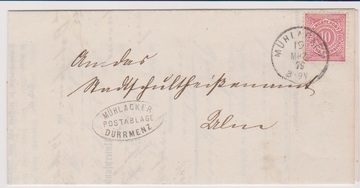 MÜHLACKER
10
An das
Stadtschultheißenamt
MÜHLACKER.
POSTABLAGE
DÜRRMENZ
Ulm